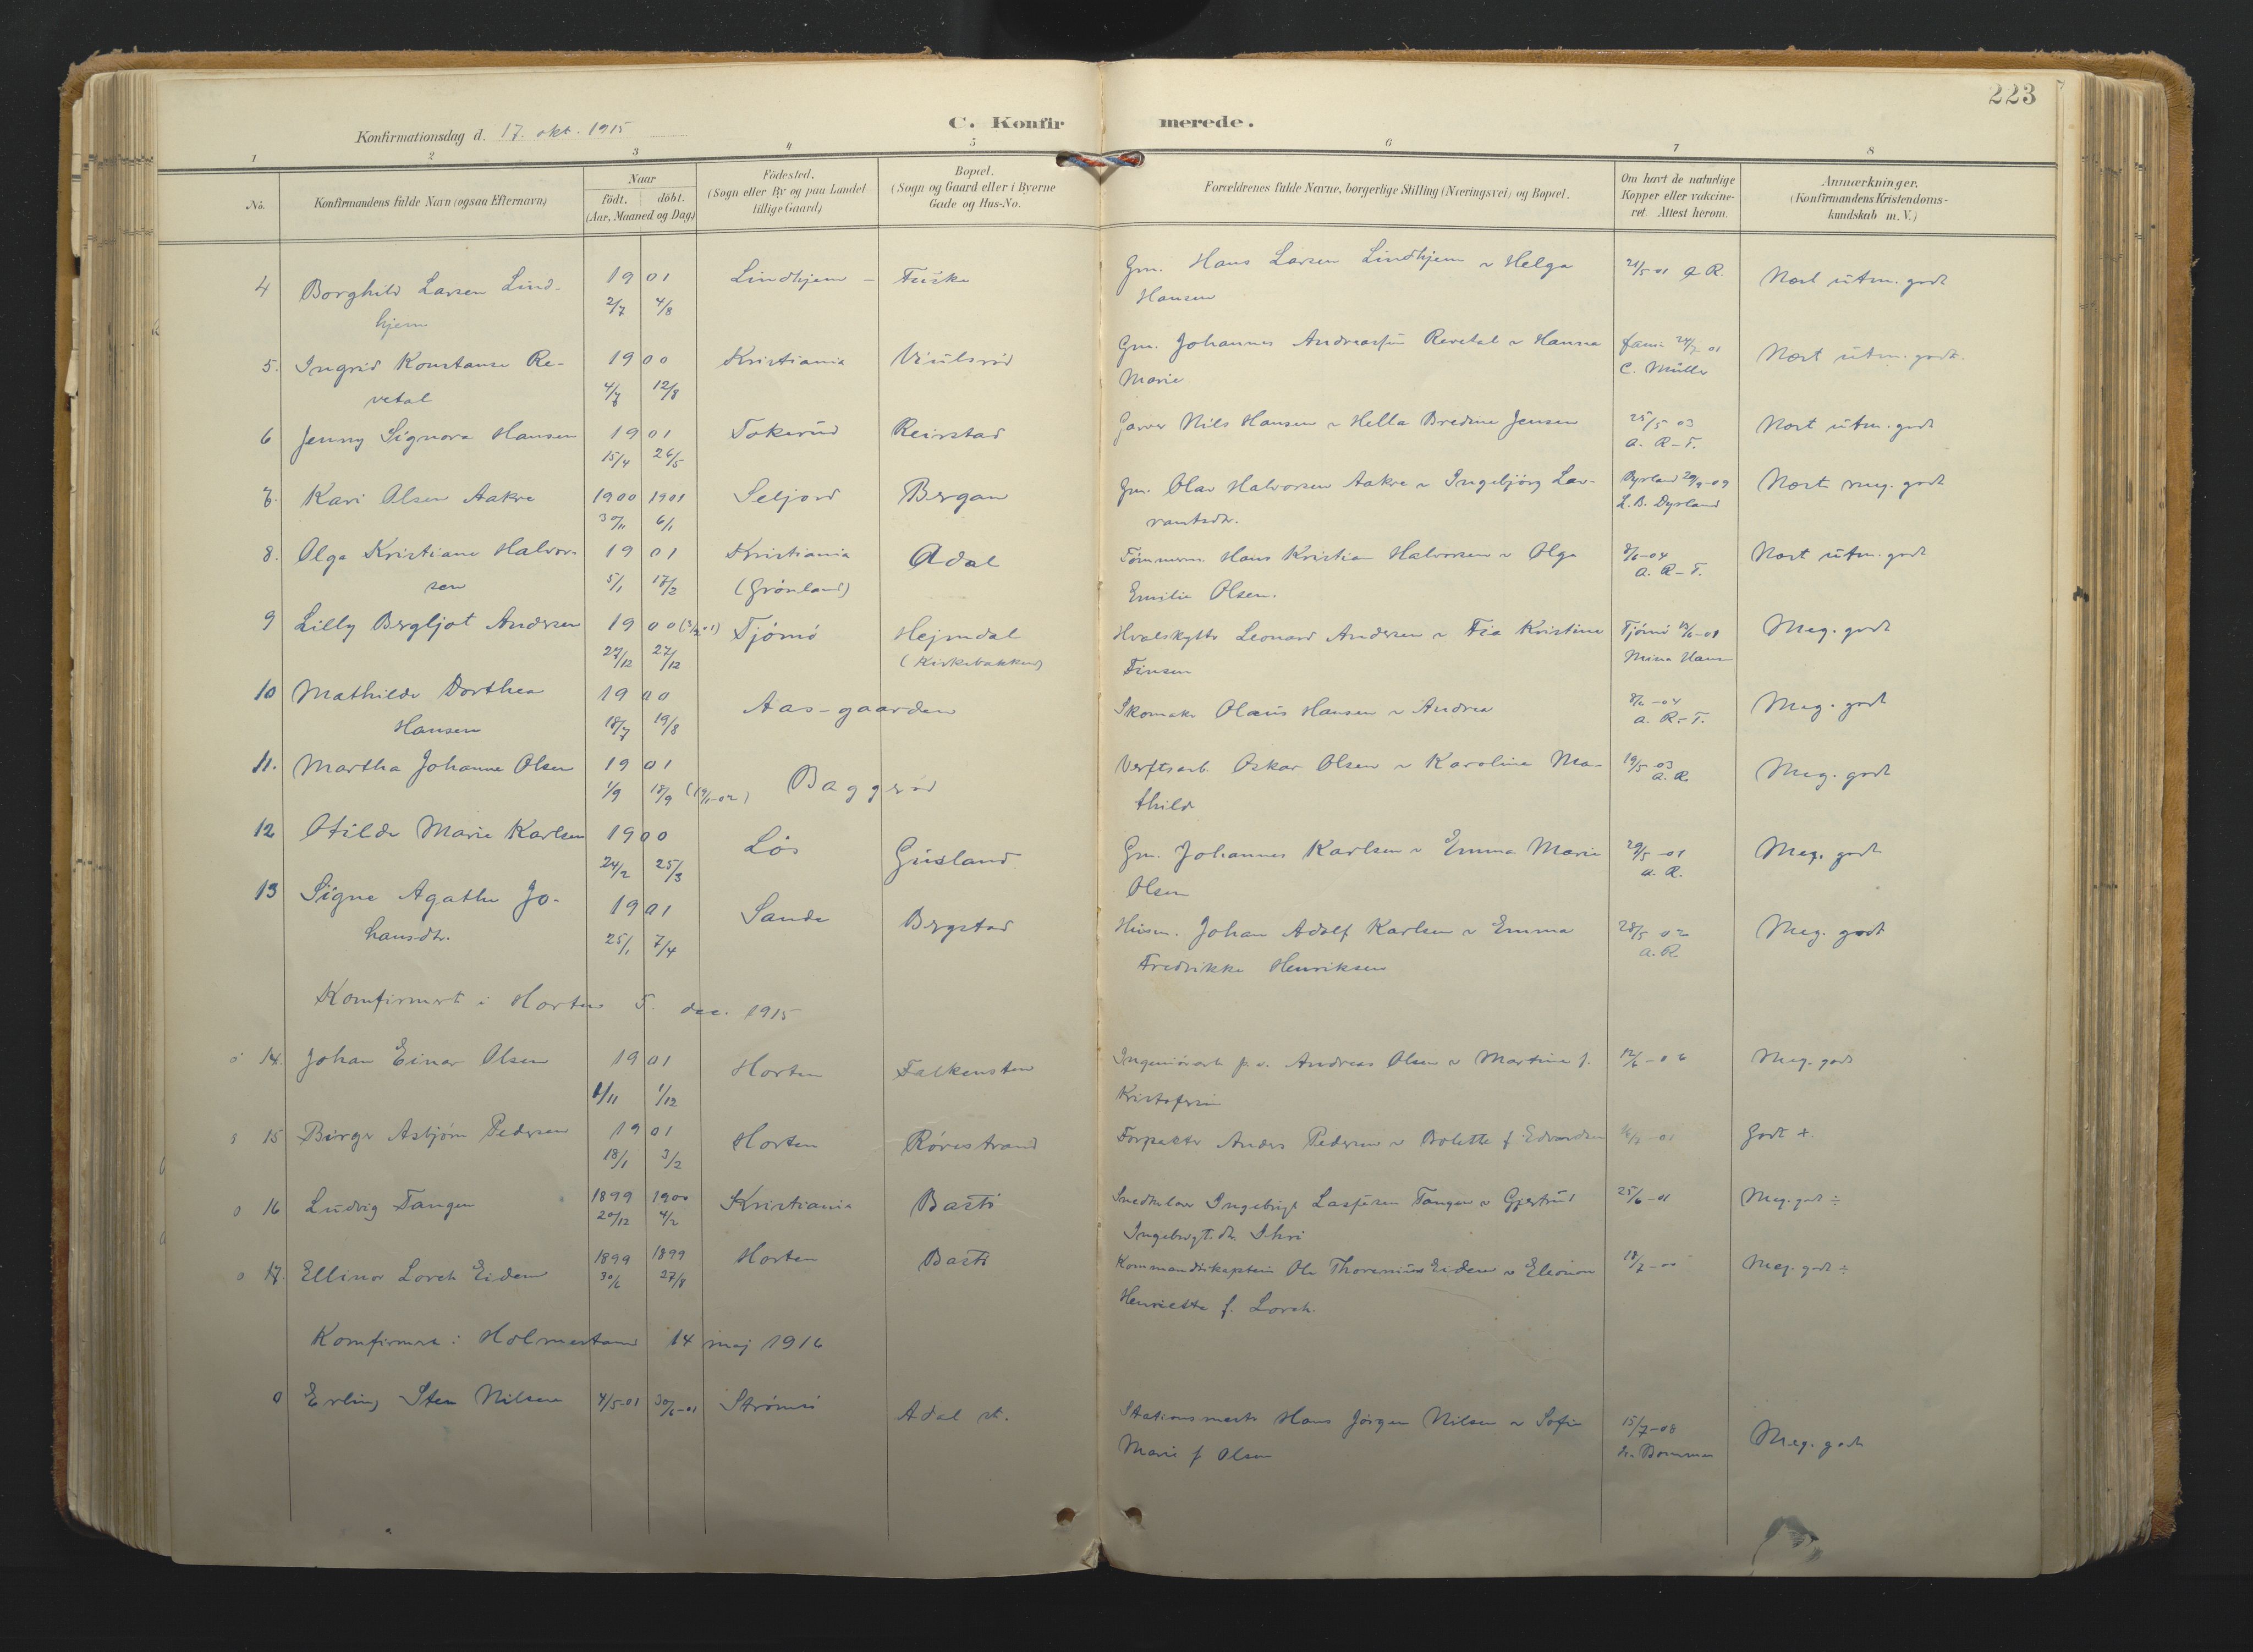 223
Konfirmationsdag d. 17. okt. 1915
C. Konfirmerede.
1 2 3 4 5 6 7 8
No.
Konfirmandens fulde Navn (ogsaa Efternavn)
Naar
födt. döbt.
(Aar, Maaned og Dag)
Födested.
(Sogn eller By og paa Landet
tillige Gaard)
Bopæl.
(Sogn og Gaard eller i Byerne
Gade og Hus-No.
Forældrenes fulde Navne, borgerlige Stilling (Næringsvei) og Bopæl.
Om havt de naturlige
Kopper eller vakcine-
ret. Attest herom.
Anmærkninger.
(Konfirmandens Kristendoms-
kundskab m. V.)
4 Borghild Larsen Lind- 1901 Lindhjem – Fuske Gm. Hans Larsen Lindhjem & Helga 21/5 01 A R. Næst utm. godt
hjem 2/7 4/8 Hansen
5. Ingrid Konstanse Re- 1900 Kristiania Viulsrød Gm. Johannes Andreassen Revetal & Hanna 24/7 01 Næst utm. godt.
vetal 12/8 Marie C. Müller
6 Jenny Signora Hansen 1901 Tokerud Reirstad Garver Nils Hansen & Hella Bredine Jensen 25/5 03 Næst utm. godt
15/4 26/5 A. R–T.
7. Kari Olsen Aakre 1900 1901 Seljord Bergan Gm. Olav Halvorsen Aakre & Ingebjörg Lav- Næst meg. godt
30/11 6/1 rantsdtr. L. B. Dyrland
8. Olga Kristiane Halvor- 1901 Kristiania Adal Tömmerm. Hans Kristian Halvorsen & Olga 8/6–04 Næst utm. godt
sen 5/1 17/2 (Grönland) Emilie Olsen. A. R–T.
9 Lilly Bergljot Andersen 1900 Tjömö Hejmdal Hvalskytter Leonard Andersen & Fia Kristine Tjömö Meg. godt
27/12 27/12 (Kirkebakken) Finsen Mina Hans
10 Mathilde Dorthea 1900 Aas-gaarden Skomaker Olaus Hansen & Andrea 8/6–04 Meg. godt
Hansen 18/7 19/8 A. R.–T.
11. Martha Johanne Olsen 1901 Baggeröd Verftsarb. Oskar Olsen & Karoline Ma- 19/5 03 Meg. godt
1/9 18/9 thilde A. R.
12 Otilde Marie Karlsen 1900 Lös Gusland Gm. Johannes Karlsen & Emma Marie 29/5–01 Meg. godt
24/2 25/3 Olsen A. R.
13 Signe Agathe Jo- 1901 Sande Bergstad Husm. Johan Adolf Karlsen & Emma 28/5 02 Meg. godt
hansdtr. 25/1 7/4 Fredrikke Henriksen A. R.
Komfirmert i Horten 5. dec. 1915
14. Johan Einar Olsen 1901 Horten Falkensten Ingeniörarb. Andreas Olsen & Martine f. 12/6–06 Meg. godt
1/11 1/12 Kristofersen
15 Birger Asbjörn Pedersen 1901 Horten Rörestrand Forpakter Anders Pedersen & Bolette f Edvardsen Godt +.
18/1 3/2
o 16 Ludvig Tangen 1899 1900 Kristiania Bastö Snedkelær Ingebrigt Tangen & Gjertrud 25/6–01 Meg. godt ÷
20/12 4/2 Ingebrigt.dtr.
o 17. Ellinor Lorch Eiden 1899 1899 Horten Bastö Kommandörkaptein Ole Thorenius Eiden & Eleonora 18/7–00 Meg. godt ÷
30/6 27/8 Henriette f. Lorch.
Komfirmert i Holmestrand 14 maj 1916
o Erling Sten Nilsen 4/5–01 30/6–01 Strömsö Adal st. Stationsmester Hans Jörgen Nilsen & Sofie 15/7–08 Meg. godt
Marie f Olsen